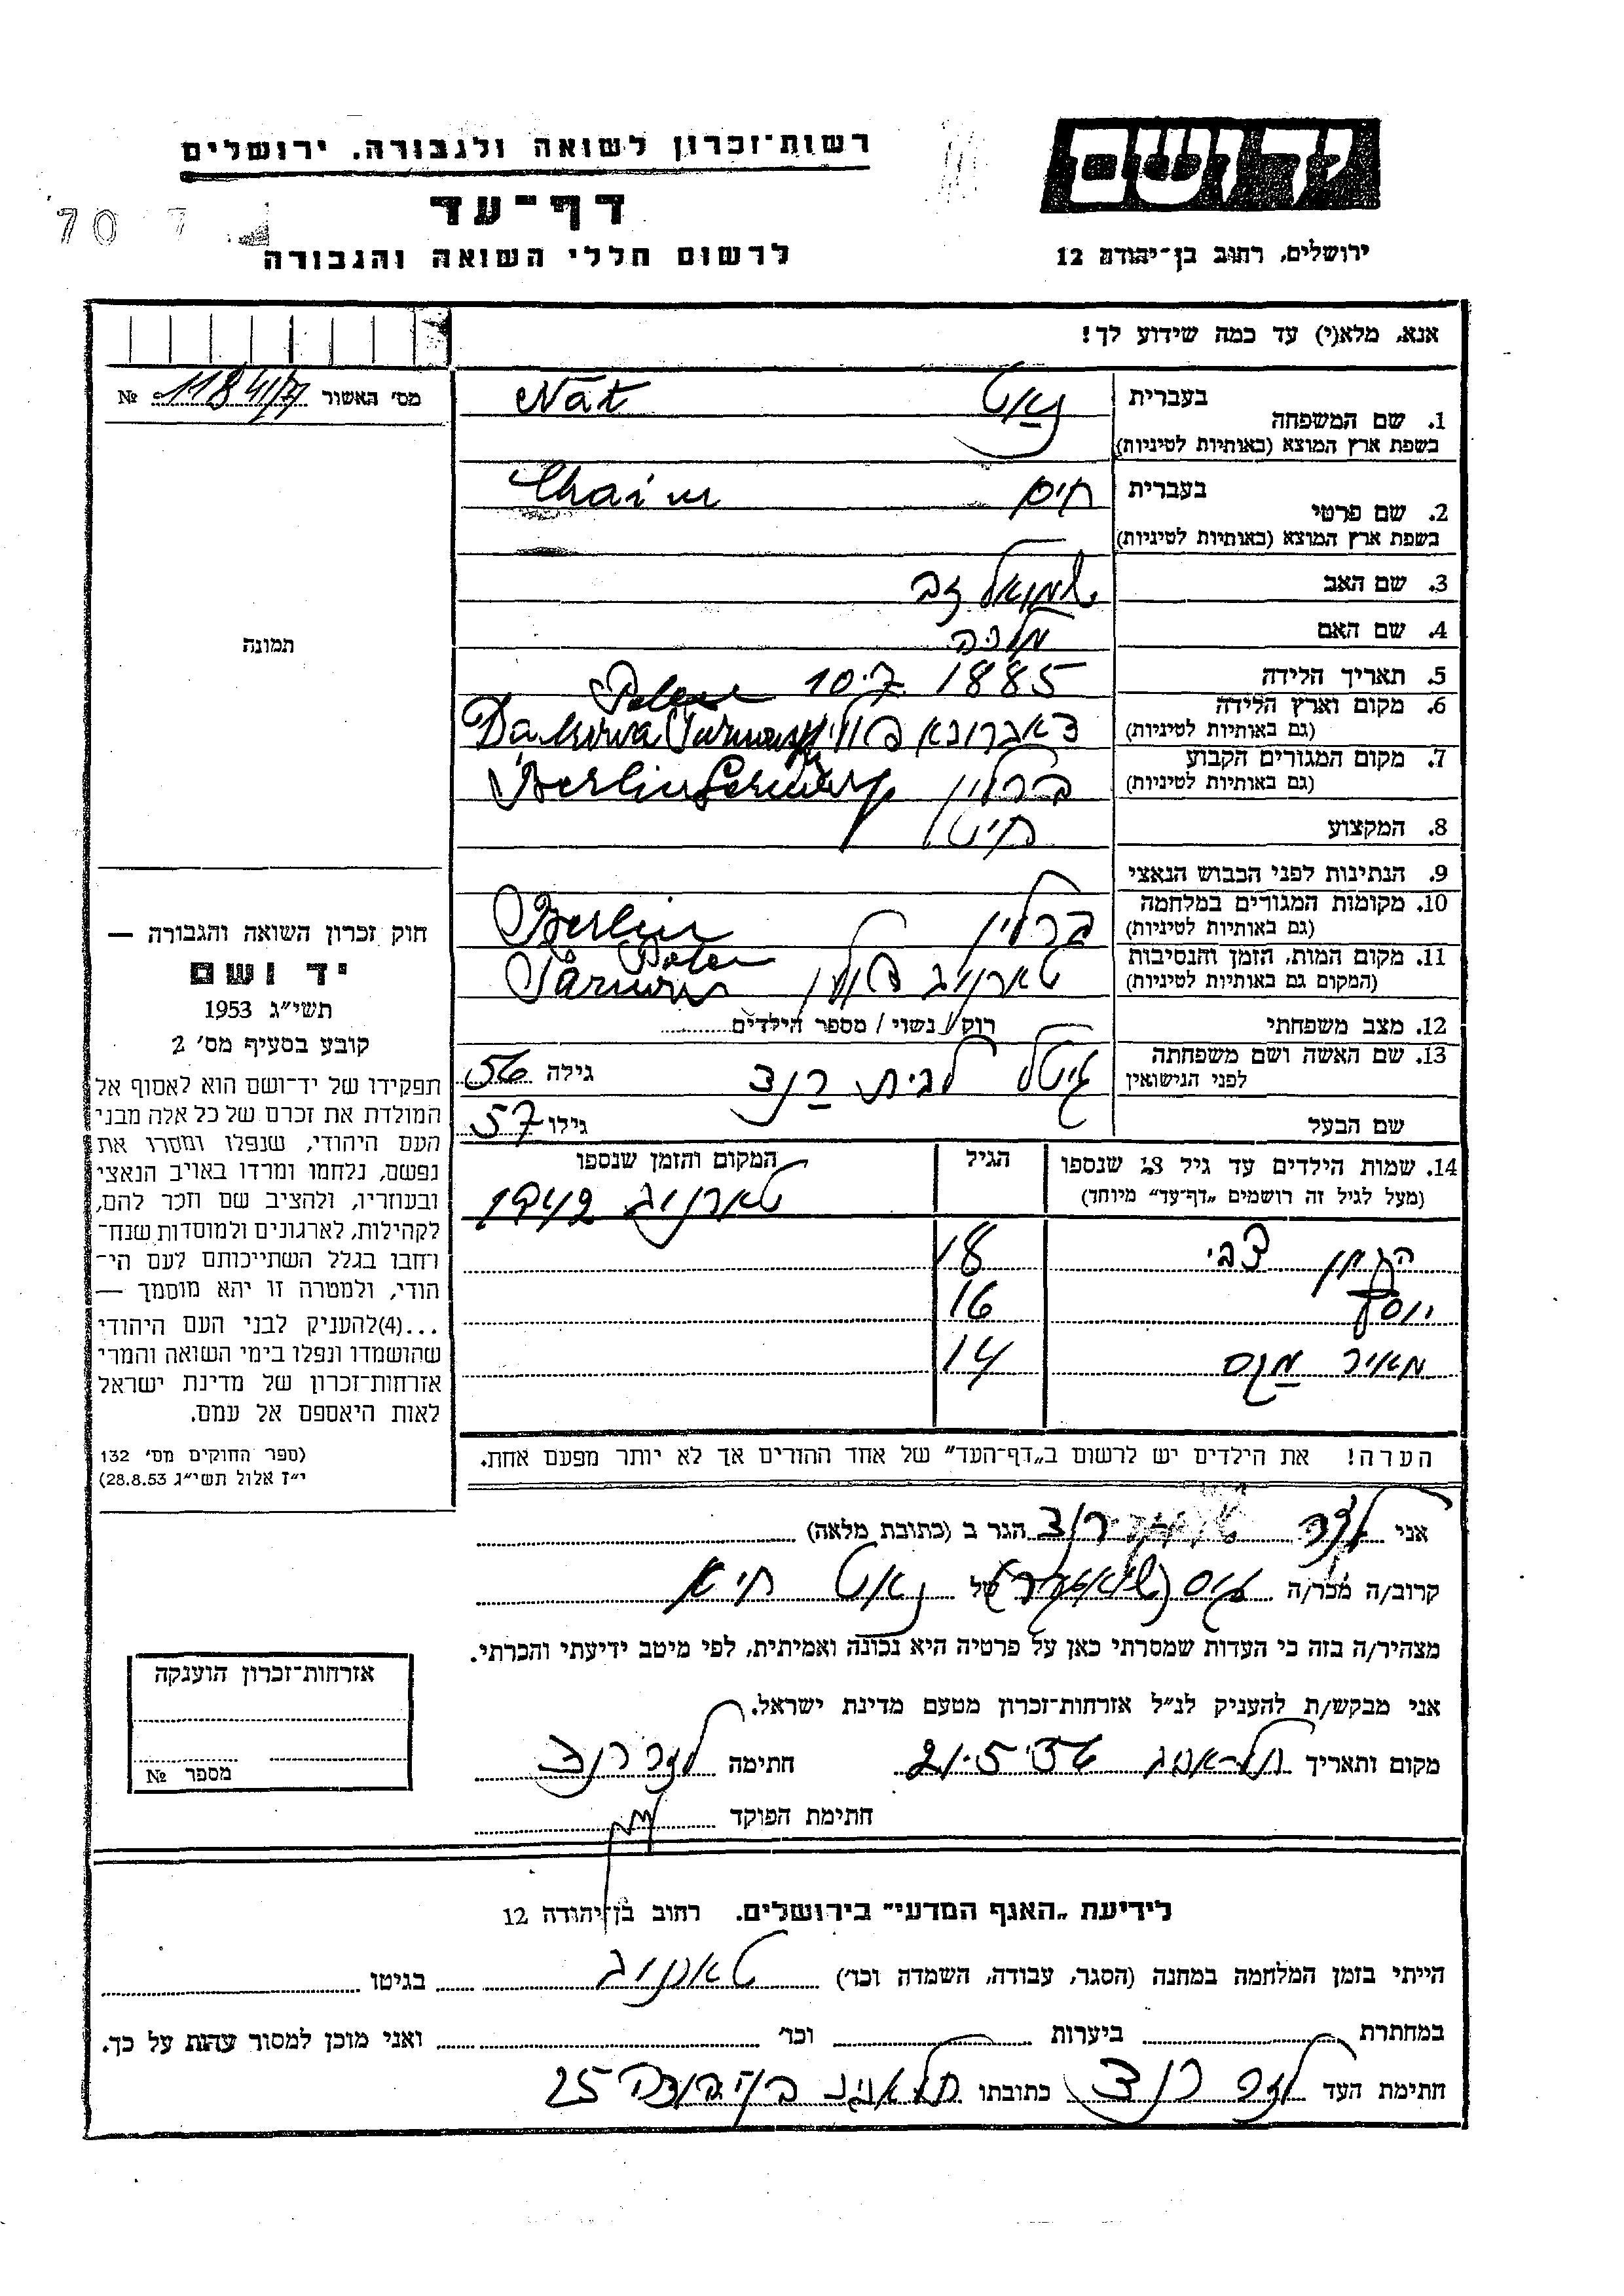 רשות־זכרון לשואה ולגבורה, ירושלים
יד ושם
דף־עד
לרשום חללי השואה והגבורה
ירושלים, רחוב בן־יהודה 12
70 7
אנא, מלא(י) עד כמה שידוע לך!
מס׳ האשור № 1184/77
1. שם המשפחה
בעברית נאט Nat
בשפת ארץ המוצא (באותיות לטיניות)
2. שם פרטי
בעברית חיים Chaim
בשפת ארץ המוצא (באותיות לטיניות)
3. שם האב שמואל זאב
4. שם האם מלכה
5. תאריך הלידה 10.7. 1885
6. מקום וארץ הלידה
(גם באותיות לטיניות) פולין Polen
7. מקום המגורים הקבוע
(גם באותיות לטיניות) ברלין Berlin
8. המקצוע חייט
9. הנתינות לפני הכבוש הנאצי
10. מקומות המגורים במלחמה
(גם באותיות לטיניות) ברלין Berlin
11. מקום המות, הזמן והנסיבות
(המקום גם באותיות לטיניות) טארנוב פולין Polen
12. מצב משפחתי רווק / נשוי / מספר הילדים
13. שם האשה ושם משפחתה
לפני הנישואין גיטל לבית רנד גילה 56
שם הבעל גילו 57
14. שמות הילדים עד גיל 18 שנספו
(מעל לגיל זה רושמים „דף־עד" מיוחד)
הגיל
המקום והזמן שנספו
טארנוב 1942
צבי 18
יוסף 16
מאיר 14
הערה! את הילדים יש לרשום ב„דף־העד" של אחד ההורים אך לא יותר מפעם אחת.
תמונה
חוק זכרון השואה והגבורה —
יד ושם
תשי״ג 1953
קובע בסעיף מס׳ 2
תפקידו של יד־ושם הוא לאסוף אל
המולדת את זכרם של כל אלה מבני
העם היהודי, שנפלו ומסרו את
נפשם, נלחמו ומרדו באויב הנאצי
ובעוזריו, ולהציב שם וזכר להם,
לקהילות, לארגונים ולמוסדות שנח־
רחבו בגלל השתייכותם לעם הי־
הודי, ולמטרה זו יהא מוסמך —
...(4)להעניק לבני העם היהודי
שהושמדו ונפלו בימי השואה והמרי
אזרחות־זכרון של מדינת ישראל
לאות היאספם אל עמם.
(ספר החוקים מס׳ 132
י״ז אלול תשי״ג 28.8.53)
אני רנד הגר ב (כתובת מלאה)
קרוב/ה מכר/ה גיס של נאט חיים
מצהיר/ה בזה כי העדות שמסרתי כאן על פרטיה היא נכונה ואמיתית, לפי מיטב ידיעתי והכרתי.
אני מבקש/ת להעניק לנ״ל אזרחות־זכרון מטעם מדינת ישראל.
מקום ותאריך תל־אביב 21.5.56 חתימה רנד
חתימת הפוקד
אזרחות־זכרון הוענקה
מספר №
לידיעת „האגף המדעי" בירושלים. רחוב בן־יהודה 12
הייתי בזמן המלחמה במחנה (הסגר, עבודה, השמדה וכד׳) טארנוב בגיטו
במחתרת ביערות וכד׳ ואני מוכן למסור עדות על כך.
חתימת העד רנד כתובתו תל אביב בן יהודה 25